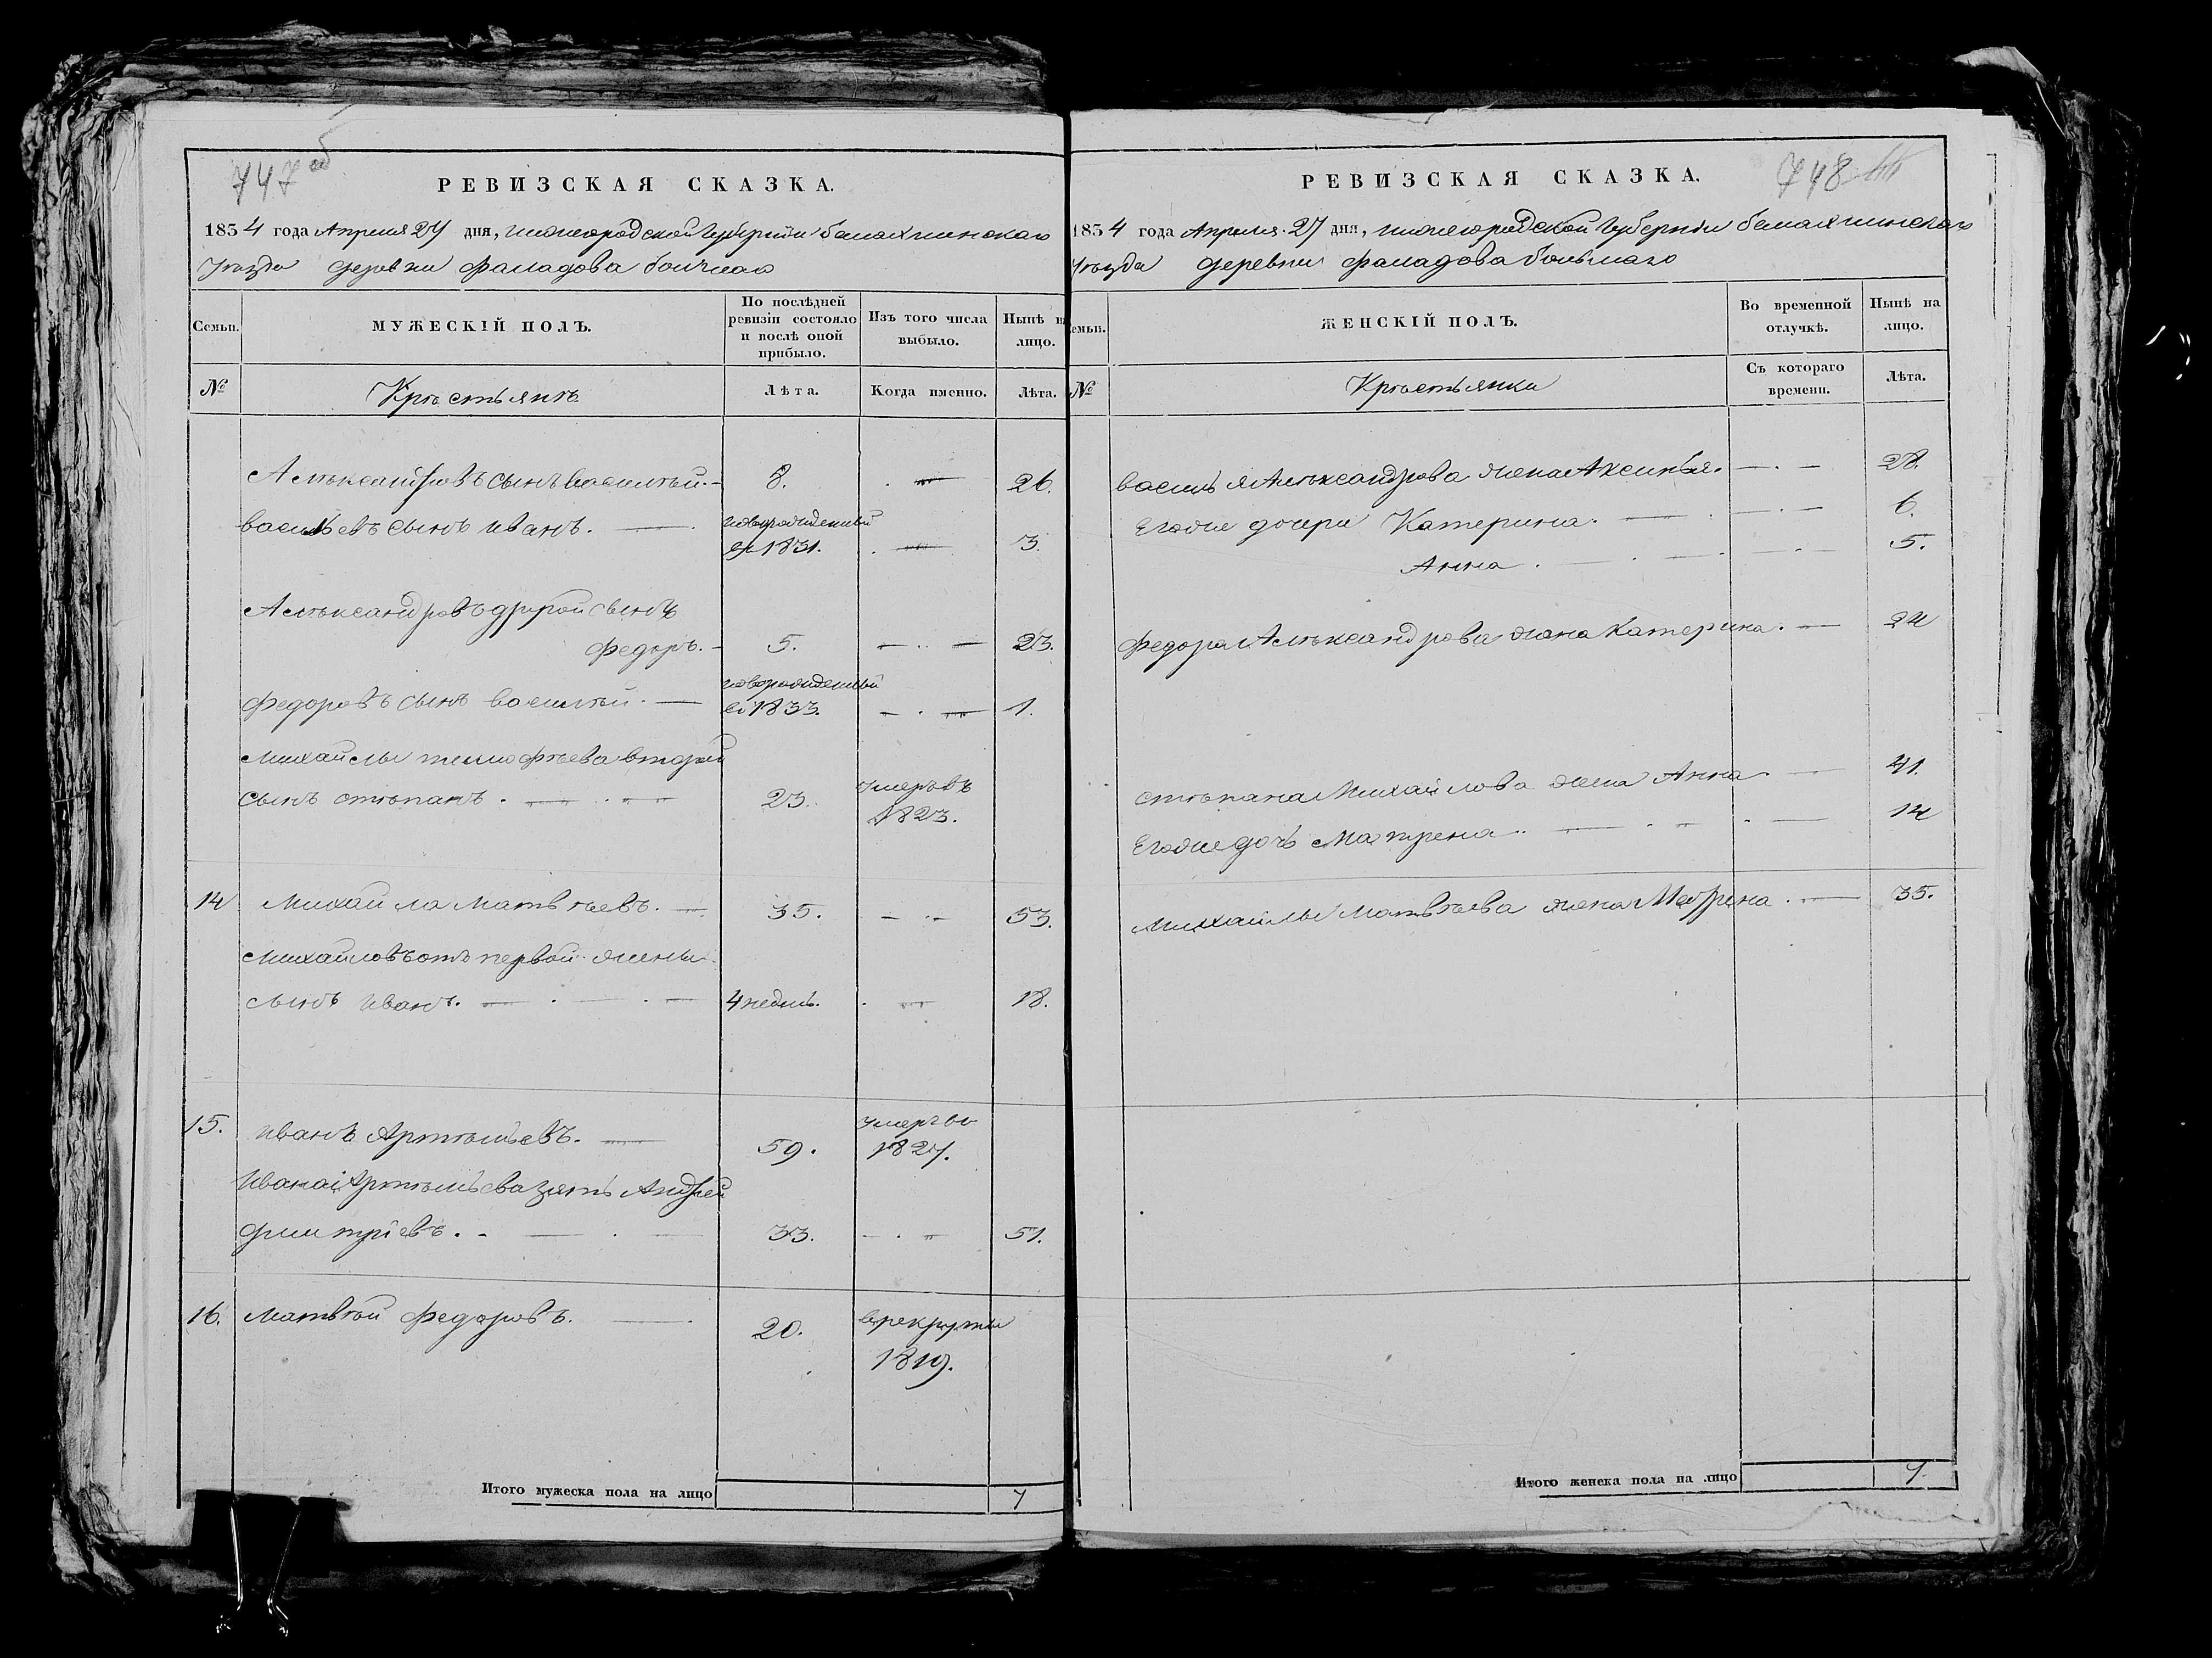 747 об
РЕВИЗСКАЯ СКАЗКА.
1834 года Апреля 27 дня, нижегородской губернiи балахнинскаго
Уѣзда деревни Фаладова болшаго
Семьи. МУЖЕСКIЙ ПОЛЪ. По послѣдней ревизiи состояло и послѣ оной прибыло. Изъ того числа выбыло. Нынѣ на лицо.
№ Крѣстьянъ Лѣта. Когда именно. Лѣта.
Алѣксандровъ сынъ василѣй. 8. 26.
васильевъ сынъ иванъ. новорожденный
в 1831. 3.
Алѣксандровъ другой сынъ
федоръ. 5. 23.
федоровъ сынъ василѣй. новорожденный
в 1833. 1.
михайлы тимофѣева второй
сынъ стѣпанъ. 23. умеръ въ
1823.
14 михайла матвѣевъ. 35. 53.
михайловъ отъ первой жены
сынъ иванъ. 4 недѣль. 18.
15. иванъ Артѣмьевъ. 59. умеръ въ
1827.
ивана Артѣмьева зять Андрей
дмитрiевъ. 33. 51.
16. матвѣй федоровъ. 20. в рекруты
1819.
Итого мужеска пола на лицо 7
748
РЕВИЗСКАЯ СКАЗКА.
1834 года Апреля 27 дня, нижегородской губернiи балахнинскаго
Уѣзда деревни Фаладова большаго
Семьи. ЖЕНСКIЙ ПОЛЪ. Во временной отлучкѣ. Нынѣ на лицо.
№ Крѣстьянки Съ котораго времени. Лѣта.
василья Алѣксандрова жена Аксинья. 28.
Егоже дочери Катерина. 6.
Анна. 5.
федора Алѣксандрова жена Катерина. 24
стѣпана михайлова жена Анна. 41.
Егоже дочь матрена. 14
михайлы матвѣева жена 35.
Итого женска пола на лицо 7.